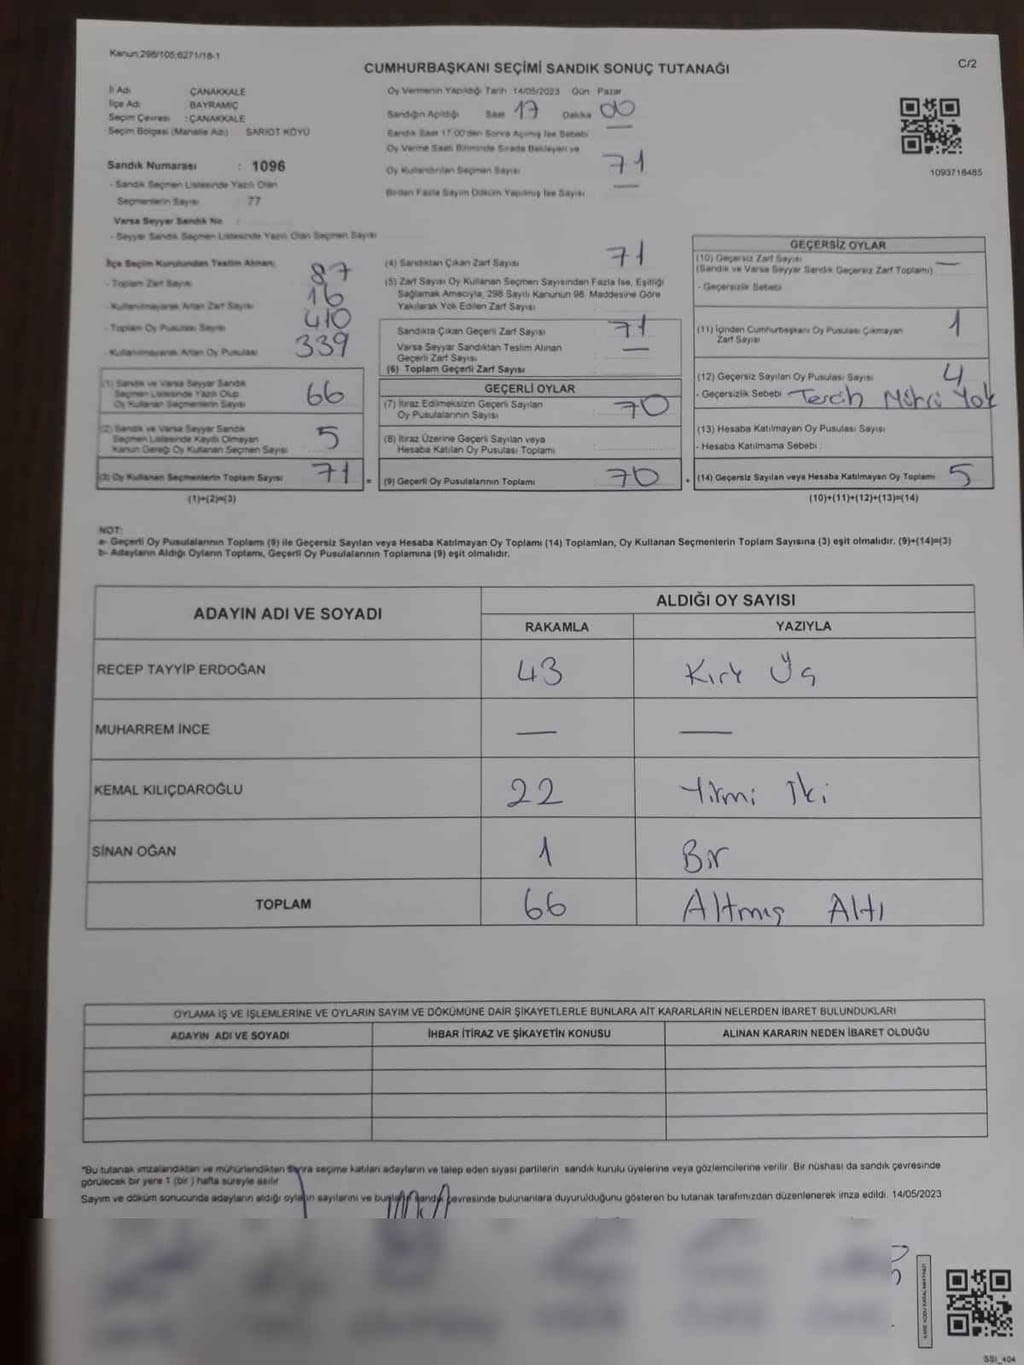 Kanun:298/105;6271/18-1
C/2
CUMHURBAŞKANI SEÇİMİ SANDIK SONUÇ TUTANAĞI
İl Adı ÇANAKKALE
İlçe Adı BAYRAMİÇ
Seçim Çevresi : ÇANAKKALE
Seçim Bölgesi (Mahalle Adı) SARIOT KÖYÜ
Oy Vermenin Yapıldığı Tarih 14/05/2023 Gün Pazar
Sandığın Açıldığı Saat 17 Dakika 00
Sandık Saat 17.00'den Sonra Açılmış İse Sebebi —
Oy Verme Saati Bitiminde Sırada Bekleyen ve
Oy Kullandırılan Seçmen Sayısı 71
Birden Fazla Sayım Döküm Yapılmış İse Sayısı —
1093718485
Sandık Numarası : 1096
- Sandık Seçmen Listesinde Yazılı Olan
Seçmenlerin Sayısı 77
Varsa Seyyar Sandık No :
- Seyyar Sandık Seçmen Listesinde Yazılı Olan Seçmen Sayısı
İlçe Seçim Kurulundan Teslim Alınan;
- Toplam Zarf Sayısı 87
- Kullanılmayarak Artan Zarf Sayısı 16
- Toplam Oy Pusulası Sayısı 410
- Kullanılmayarak Artan Oy Pusulası 339
(1) Sandık ve Varsa Seyyar Sandık
Seçmen Listesinde Yazılı Olup
Oy Kullanan Seçmenlerin Sayısı 66
(2) Sandık ve Varsa Seyyar Sandık
Seçmen Listesinde Kayıtlı Olmayan
Kanun Gereği Oy Kullanan Seçmen Sayısı 5
(3) Oy Kullanan Seçmenlerin Toplam Sayısı 71
(1)+(2)=(3)
(4) Sandıktan Çıkan Zarf Sayısı 71
(5) Zarf Sayısı Oy Kullanan Seçmen Sayısından Fazla İse, Eşitliği
Sağlamak Amacıyla, 298 Sayılı Kanunun 98. Maddesine Göre
Yakılarak Yok Edilen Zarf Sayısı
Sandıkta Çıkan Geçerli Zarf Sayısı 71
Varsa Seyyar Sandıktan Teslim Alınan
Geçerli Zarf Sayısı —
(6) Toplam Geçerli Zarf Sayısı
GEÇERLİ OYLAR
(7) İtiraz Edilmeksizin Geçerli Sayılan
Oy Pusulalarının Sayısı 70
(8) İtiraz Üzerine Geçerli Sayılan veya
Hesaba Katılan Oy Pusulası Toplamı
= (9) Geçerli Oy Pusulalarının Toplamı 70
GEÇERSİZ OYLAR
(10) Geçersiz Zarf Sayısı —
(Sandık ve Varsa Seyyar Sandık Geçersiz Zarf Toplamı)
- Geçersizlik Sebebi
(11) İçinden Cumhurbaşkanı Oy Pusulası Çıkmayan
Zarf Sayısı 1
(12) Geçersiz Sayılan Oy Pusulası Sayısı 4
- Geçersizlik Sebebi Tercih Mührü Yok
(13) Hesaba Katılmayan Oy Pusulası Sayısı
- Hesaba Katılmama Sebebi :
+ (14) Geçersiz Sayılan veya Hesaba Katılmayan Oy Toplamı 5
(10)+(11)+(12)+(13)=(14)
NOT:
a- Geçerli Oy Pusulalarının Toplamı (9) ile Geçersiz Sayılan veya Hesaba Katılmayan Oy Toplamı (14) Toplamları, Oy Kullanan Seçmenlerin Toplam Sayısına (3) eşit olmalıdır. (9)+(14)=(3)
b- Adayların Aldığı Oyların Toplamı, Geçerli Oy Pusulalarının Toplamına (9) eşit olmalıdır.
ADAYIN ADI VE SOYADI
ALDIĞI OY SAYISI
RAKAMLA YAZIYLA
RECEP TAYYİP ERDOĞAN 43 Kırk Üç
MUHARREM İNCE — —
KEMAL KILIÇDAROĞLU 22 Yirmi İki
SİNAN OĞAN 1 Bir
TOPLAM 66 Altmış Altı
OYLAMA İŞ VE İŞLEMLERİNE VE OYLARIN SAYIM VE DÖKÜMÜNE DAİR ŞİKAYETLERLE BUNLARA AİT KARARLARIN NELERDEN İBARET BULUNDUKLARI
ADAYIN ADI VE SOYADI İHBAR İTİRAZ VE ŞİKAYETİN KONUSU ALINAN KARARIN NEDEN İBARET OLDUĞU
*Bu tutanak imzalandıktan ve mühürlendikten sonra seçime katılan adayların ve talep eden siyasi partilerin sandık kurulu üyelerine veya gözlemcilerine verilir. Bir nüshası da sandık çevresinde
görülecek bir yere 1 (bir) hafta süreyle asılır
Sayım ve döküm sonucunda adayların aldığı oyların sayılarını ve bunların sandık çevresinde bulunanlara duyurulduğunu gösteren bu tutanak tarafımızdan düzenlenerek imza edildi. 14/05/2023
SSI_404